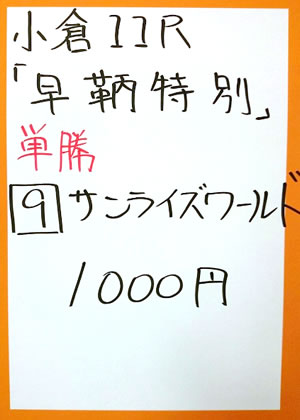 小倉11R
「早鞆特別」
単勝
9 サンライズワールド
1000円